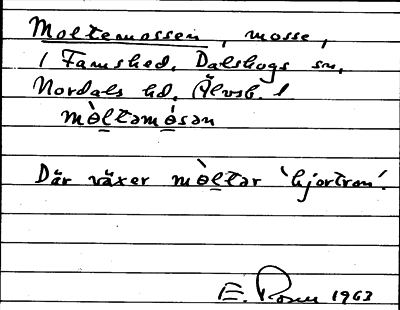 Moltemossen, mosse,
i Famshed, Dalskogs sn,
Nordals hd, Älvsb. l
mò̱ltəmó̱sən
Där växer mò̱ltər 'hjortron'.
E. Rosen 1963